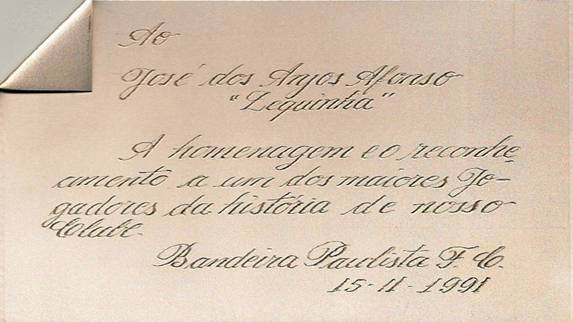 Ao
José dos Anjos Afonso
"Zequinha"
A homenagem e o reconhe
cimento a um dos maiores Jo-
gadores da história de nosso
Clube.
Bandeira Paulista F. C.
15-11-1991